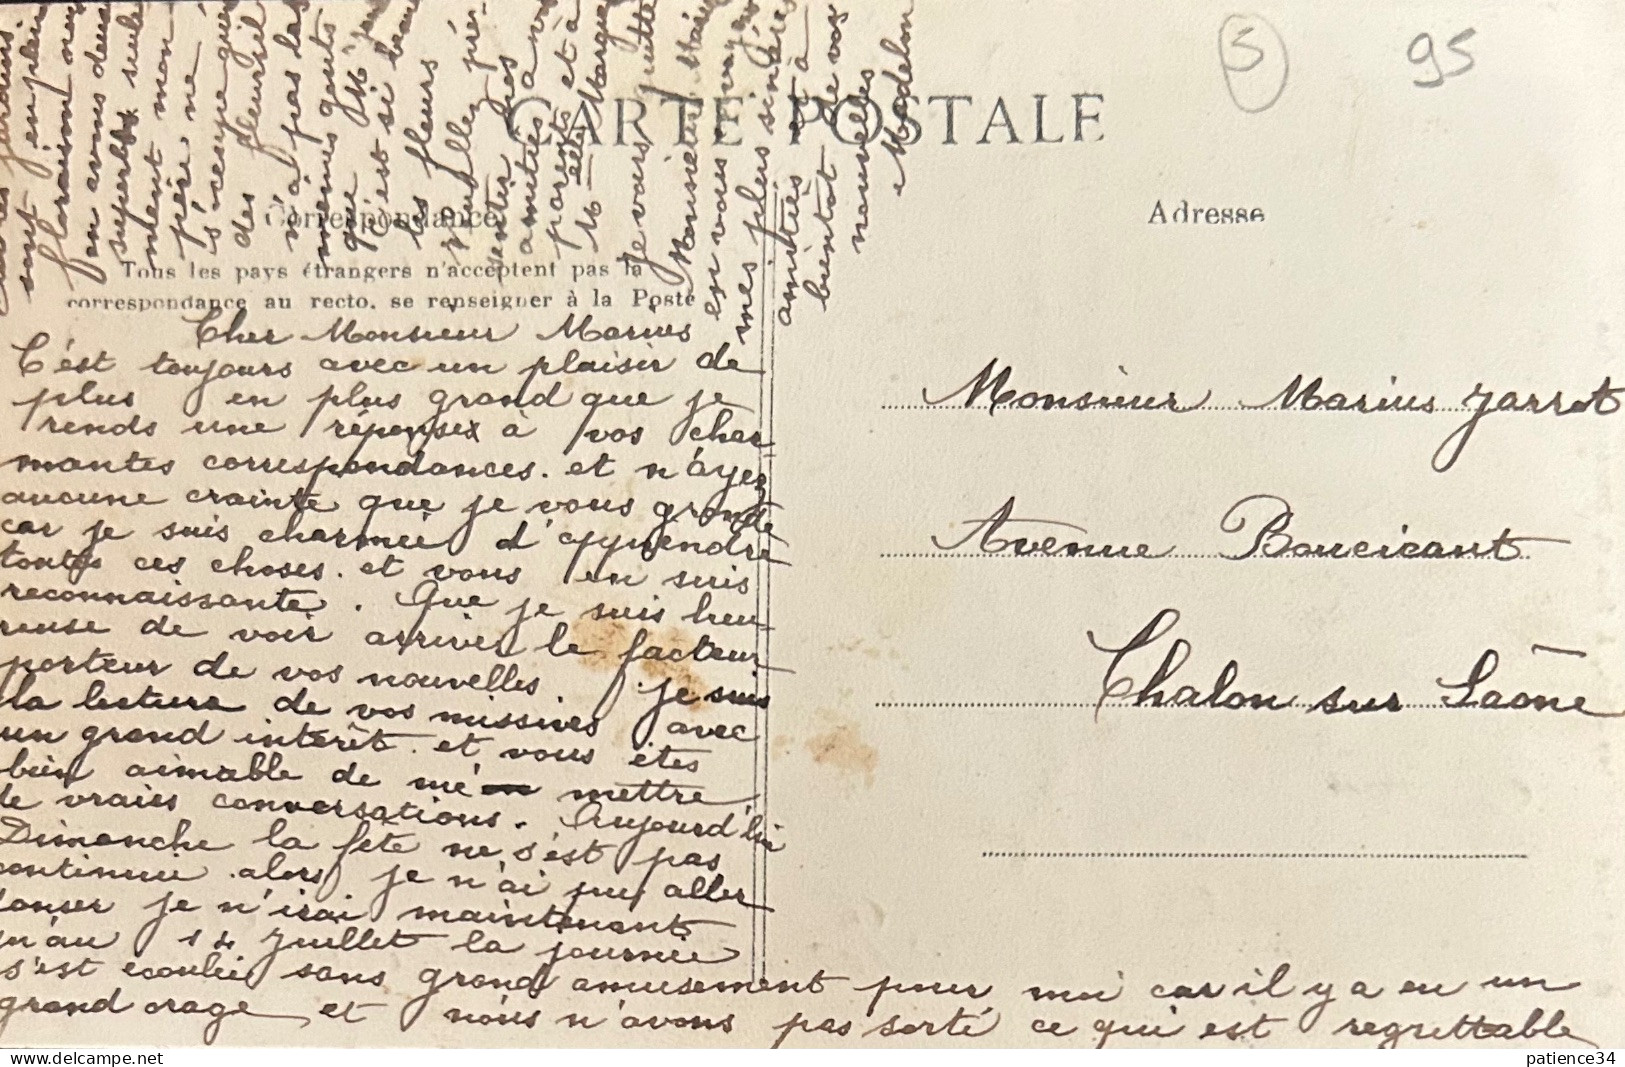 S
95
CARTE POSTALE
Correspondance
Adresse
Tous les pays étrangers n'acceptent pas la
correspondance au recto. se renseigner à la Poste
Cher Monsieur Marius
C'est toujours avec un plaisir de
plus en plus grand que je
rends une réponse à vos char-
mantes correspondances. et n'ayez
aucune crainte que je vous gronde
car je suis charmée d'apprendre
toutes ces choses. et vous en suis
reconnaissante. Que je suis heu-
reuse de voir arriver le facteur
porteur de vos nouvelles. je suis
la lecture de vos missives avec
un grand intérêt. et vous êtes
bien aimable de me mettre
de vraies conversations. Aujourd'hui
Dimanche la fête ne s'est pas
continuée alors je n'ai pu aller
danser je n'irai maintenant
qu'au 14 Juillet la journée
s'est écoulée sans grand amusement pour moi car il y a eu un
grand orage et nous n'avons pas sorti ce qui est regrettable
jardins
sont en plein
floraison nous
en avons deux
superbes seule
ment mon
père ne
s'occupe que
des fleurs il
n'a pas les
mêmes gouts
que M
c'est si beau
les fleurs
Veuillez pré-
senter mes
amitiés à vos
parents et à
Melle Marguerite
je vous quitte
Monsieur Marius
en vous envoyant
mes plus sincères
amitiés et à
bientot de vos
nouvelles
Madelon
Monsieur Marius Jarrot
Avenue Boucicaut
Chalon sur Saône
patience34